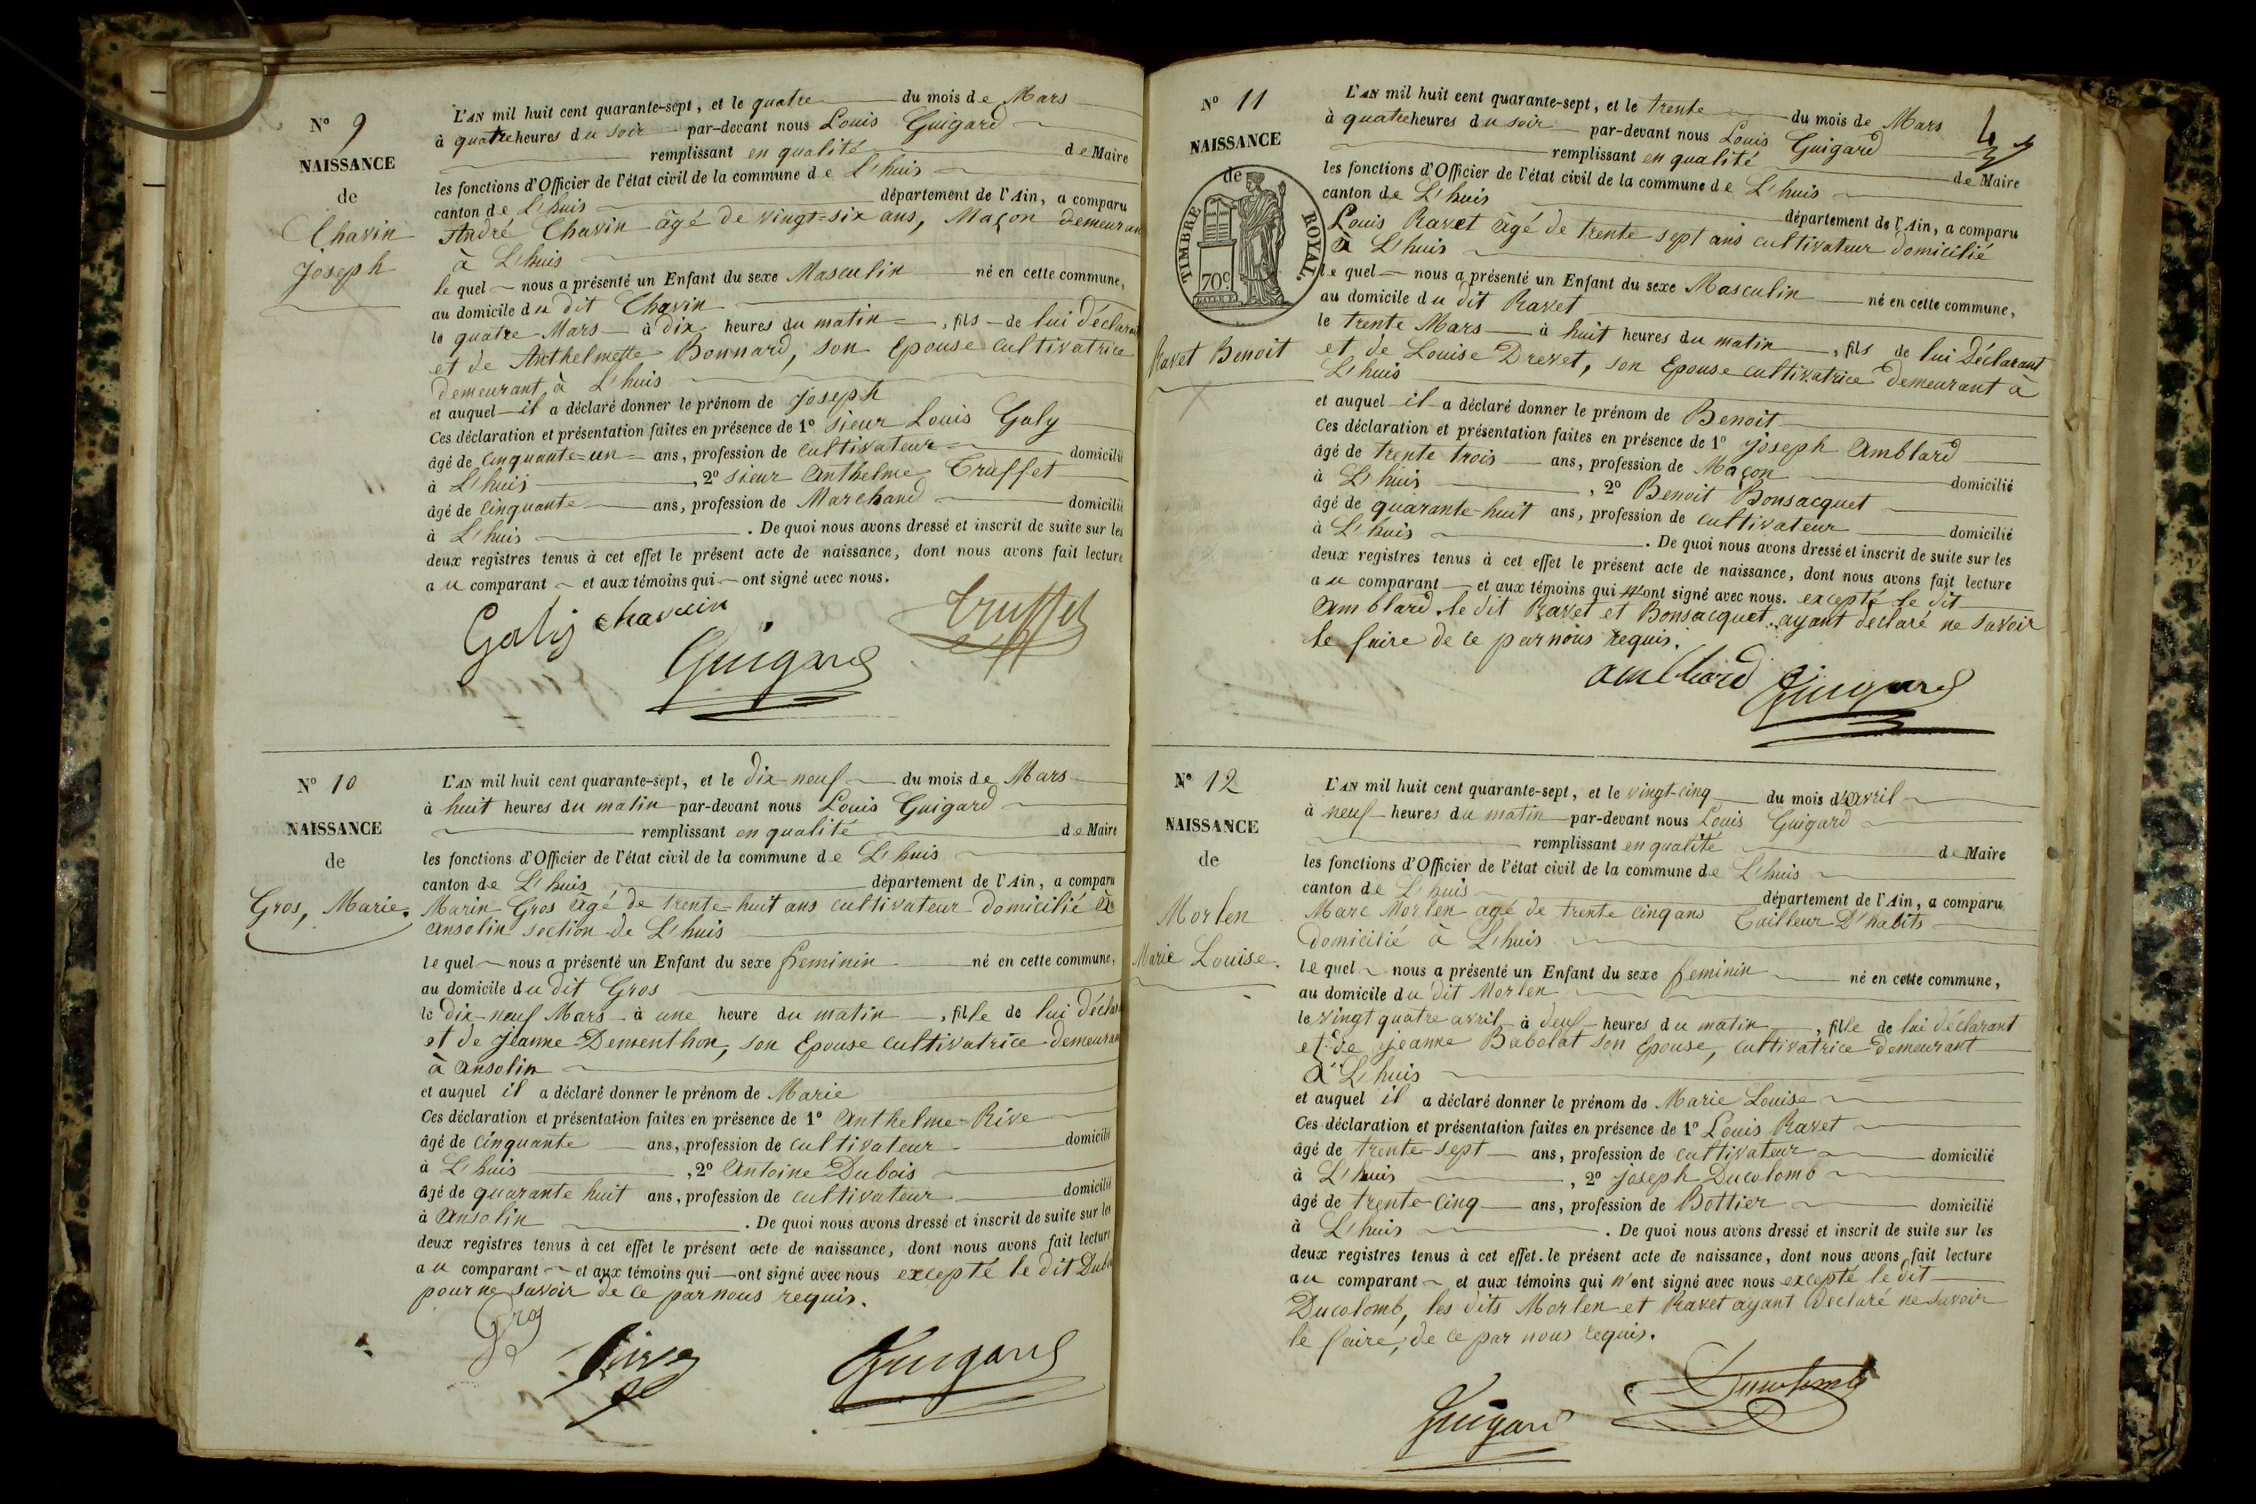 N° 9
NAISSANCE
de
Chavin
Joseph
L'AN mil huit cent quarante-sept, et le quatre du mois de Mars
à quatre heures du soir par-devant nous Louis Guigard
remplissant en qualité de Maire
les fonctions d'Officier de l'état civil de la commune de L'huis
canton de L'huis département de l'Ain, a comparu
André Chavin âgé de vingt=six ans, Maçon demeuran
à L'huis
le quel nous a présenté un Enfant du sexe Masculin né en cette commune,
au domicile du dit Chavin
le quatre Mars à dix heures du matin, fils de lui déclarant
et de Anthelmette Bonnard, son Epouse cultivatrice
demeurant à L'huis
et auquel il a déclaré donner le prénom de Joseph
Ces déclaration et présentation faites en présence de 1° sieur Louis Galy
âgé de cinquante=un ans, profession de cultivateur domicilié
à L'huis, 2° sieur Anthelme Truffet
âgé de cinquante ans, profession de Marchand domicilié
à L'huis. De quoi nous avons dressé et inscrit de suite sur les
deux registres tenus à cet effet le présent acte de naissance, dont nous avons fait lecture
au comparant et aux témoins qui ont signé avec nous.
Galy chavin Truffet
Guigard
N° 10
NAISSANCE
de
Gros, Marie.
L'AN mil huit cent quarante-sept, et le dix-neuf du mois de Mars
à huit heures du matin par-devant nous Louis Guigard
remplissant en qualité de Maire
les fonctions d'Officier de l'état civil de la commune de L'huis
canton de L'huis département de l'Ain, a comparu
Marin Gros âgé de trente-huit ans cultivateur domicilié à
Ansolin section de L'huis
le quel nous a présenté un Enfant du sexe feminin né en cette commune,
au domicile du dit Gros
le dix-neuf Mars à une heure du matin, fille de lui décla
et de Jeanne Dementhon, son Epouse cultivatrice demeuran
à Ansolin
et auquel il a déclaré donner le prénom de Marie
Ces déclaration et présentation faites en présence de 1° Anthelme Rive
âgé de cinquante ans, profession de cultivateur domicilié
à L'huis, 2° Antoine Dubois
âgé de quarante huit ans, profession de cultivateur domicilié
à Ansolin. De quoi nous avons dressé et inscrit de suite sur les
deux registres tenus à cet effet le présent acte de naissance, dont nous avons fait lecture
au comparant et aux témoins qui ont signé avec nous excepté le dit Dubo
pour ne savoir de ce par nous requis.
Gros
Rive Guigard
N° 11
NAISSANCE
de
TIMBRE ROYAL.
70c
Ravet Benoit
L'AN mil huit cent quarante-sept, et le trente du mois de Mars
à quatre heures du soir par-devant nous Louis Guigard
remplissant en qualité de Maire
les fonctions d'Officier de l'état civil de la commune de L'huis
canton de L'huis département de l'Ain, a comparu
Louis Ravet âgé de trente sept ans cultivateur domicilié
à L'huis
le quel nous a présenté un Enfant du sexe Masculin né en cette commune,
au domicile du dit Ravet
le trente Mars à huit heures du matin, fils de lui Déclarant
et de Louise Drevet, son Epouse cultivatrice demeurant à
L'huis
et auquel il a déclaré donner le prénom de Benoit
Ces déclaration et présentation faites en présence de 1° Joseph Amblard
âgé de trente trois ans, profession de Maçon domicilié
à L'huis, 2° Benoit Bonsacquet
âgé de quarante-huit ans, profession de cultivateur domicilié
à L'huis. De quoi nous avons dressé et inscrit de suite sur les
deux registres tenus à cet effet le présent acte de naissance, dont nous avons fait lecture
au comparant et aux témoins qui n'ont signé avec nous. excepté le dit
Amblard. le dit Ravet et Bonsacquet. ayant declaré ne savoir
le faire de ce par nous requis.
amblard Guigard
N° 12
NAISSANCE
de
Morlen
Marie Louise.
L'AN mil huit cent quarante-sept, et le vingt-cinq du mois d'avril
à neuf heures du matin par-devant nous Louis Guigard
remplissant en qualité de Maire
les fonctions d'Officier de l'état civil de la commune de L'huis
canton de L'huis département de l'Ain, a comparu
Marc Morlen agé de trente cinq ans Tailleur D'habits
domicilié à L'huis
le quel nous a présenté un Enfant du sexe feminin né en cette commune,
au domicile du dit Morlen
le vingt quatre avril à deuf heures du matin, fille de lui déclarant
et de Jeanne Babolat son Epouse, cultivatrice demeurant
à L'huis
et auquel il a déclaré donner le prénom de Marie Louise
Ces déclaration et présentation faites en présence de 1° Louis Ravet
âgé de trente-sept ans, profession de cultivateur domicilié
à L'huis, 2° Joseph Ducolomb
âgé de trente-cinq ans, profession de Bottier domicilié
à L'huis. De quoi nous avons dressé et inscrit de suite sur les
deux registres tenus à cet effet. le présent acte de naissance, dont nous avons fait lecture
au comparant et aux témoins qui n'ont signé avec nous excepté le dit
Ducolomb, les dits Morlen et Ravet ayant declaré ne savoir
le faire, de ce par nous requis.
Guigard Ducolomb